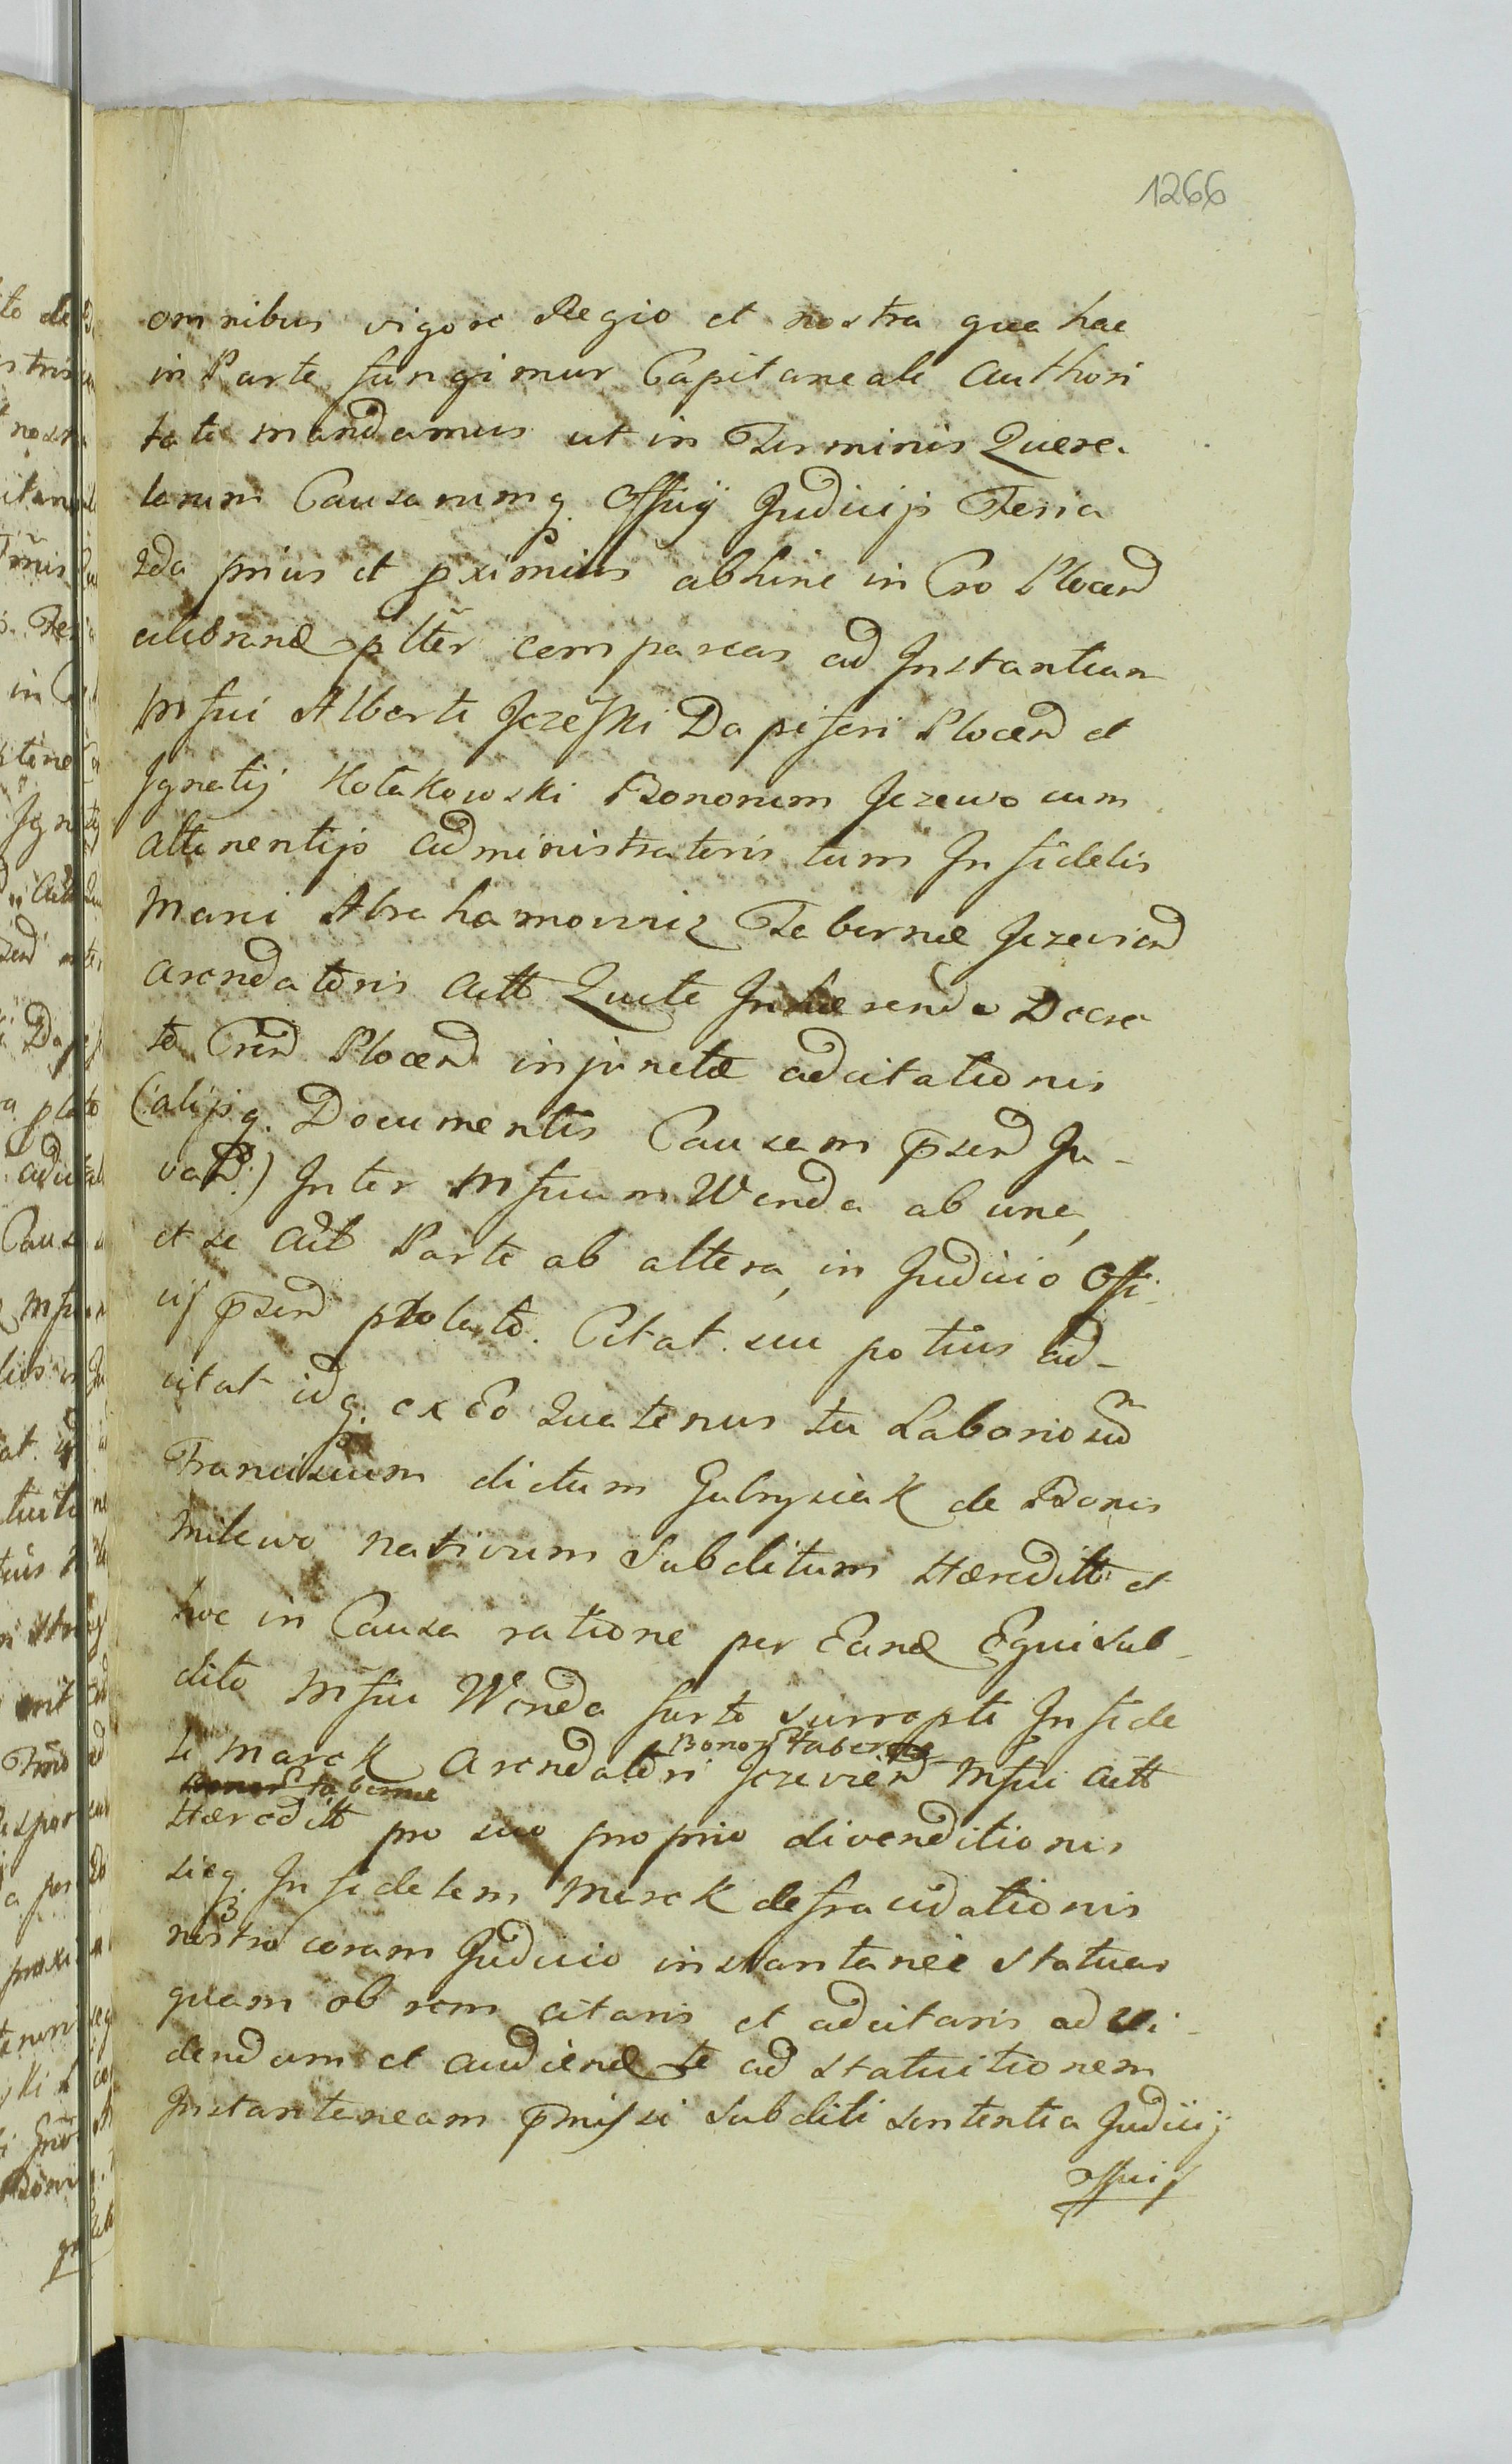 1266
omnibus vigore Regio et nostra qua hac
in Parte fungimur Capitaneali Authori
tate mandamus ut in Terminis Quere-
larum Causarumq. Offcij Judicijs Feria
2da prius et pximius abhinc in Cro Plocen
celebrand plter compareas ad Instantiam
Mfici Alberti Jezefski Dapiferi Plocen et
Ignatij Kotakowski Bonorum Jezewo cum
attinentijs administratoris tum Infidelis
Marci Abrahamowicz Tabernæ Jezevien
arendatoris Actt Qui te Inhærendo Decre
to Cren Plocen injunctæ adcitationis
(alijsq. Documentis Causam psen Ju-
van:) Inter Mficum Wenda ab una,
et se Act Parte ab altera, in Judicio Offi-
cij psen ptolato. Citat seu potius ad-
citat idq. ex Eo Quatenus tu Laboriosum
Franciscum dictum Gabrysiak de Bonis
Milewo nativum Subditum Hæreditt et
huc in Causa ratione per Eund Equi sub-
dito Mfici Wenda furto surrepti Infide
li Marek Arendatori Bonor Tabernæ Jezevien Mfici Actt
Hæreditt pro suo proprio divenditionis
sicq. Infidelem Marek defraudationis
nostro coram Judicio instantanee statuas
quam ob rem citaris et adcitaris ad vi-
dendum et audiend te ad statuitionem
Instantaneam pmissi subditi sententia Judicij
Officij